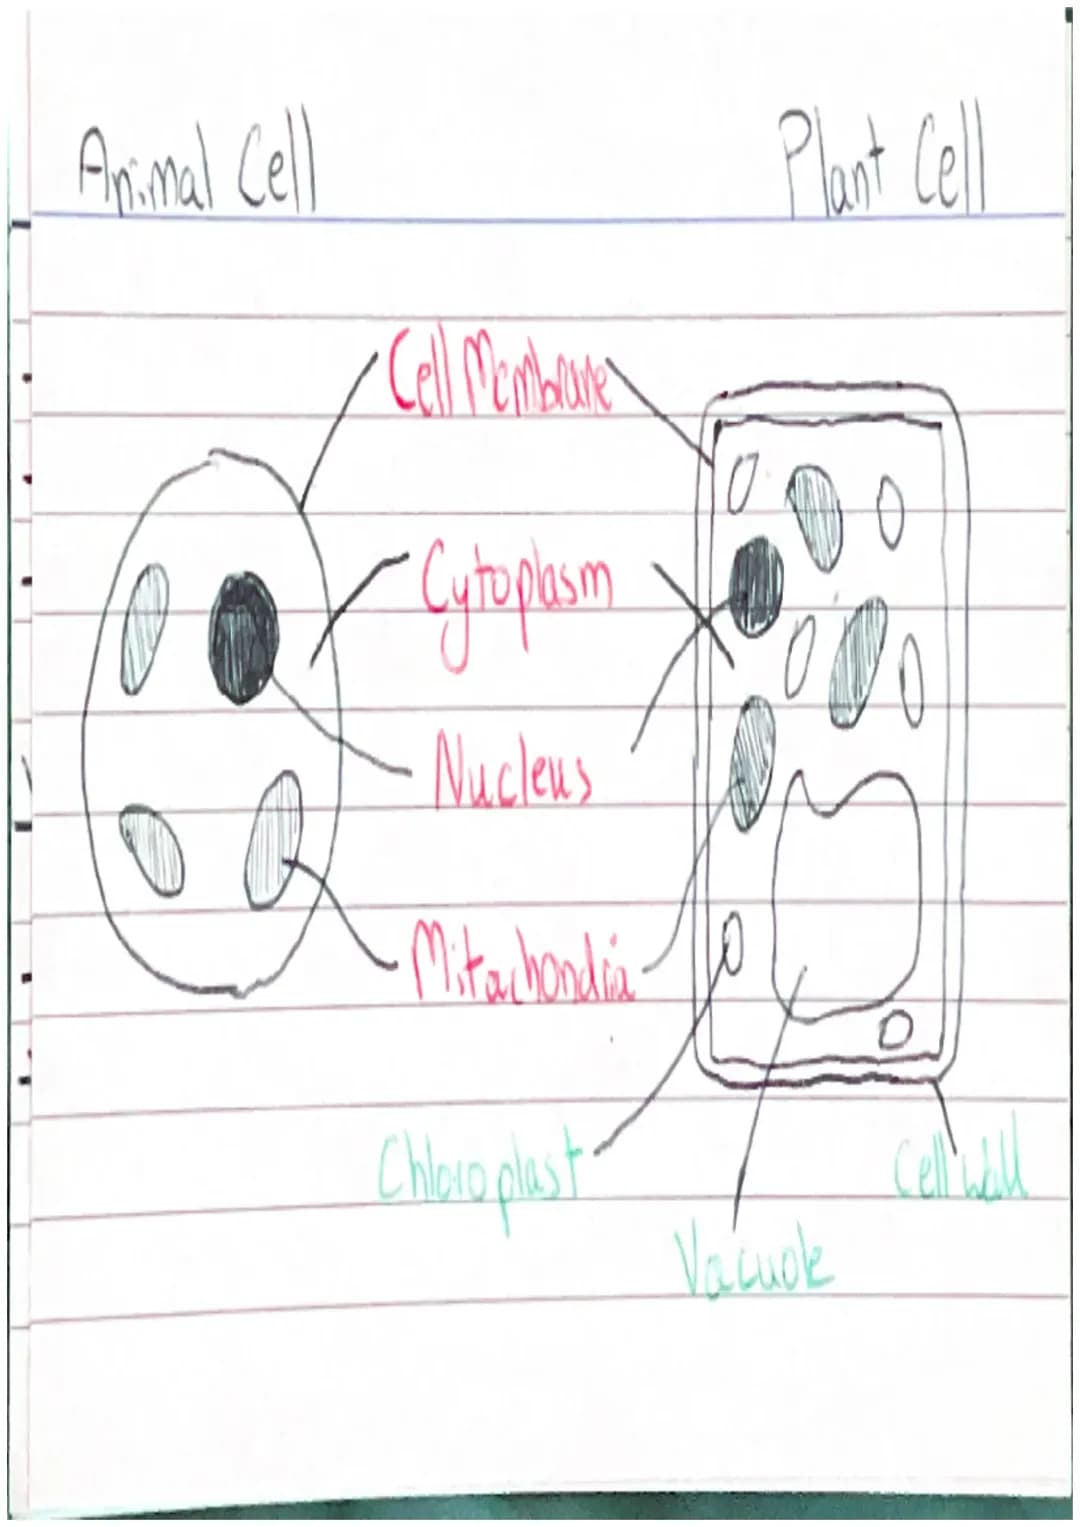 Animal Cell
Plant Cell
Cell Membrane
Cytoplasm
Nucleus
Mitachondria
Chloroplast
Cell Wall
Vacuole